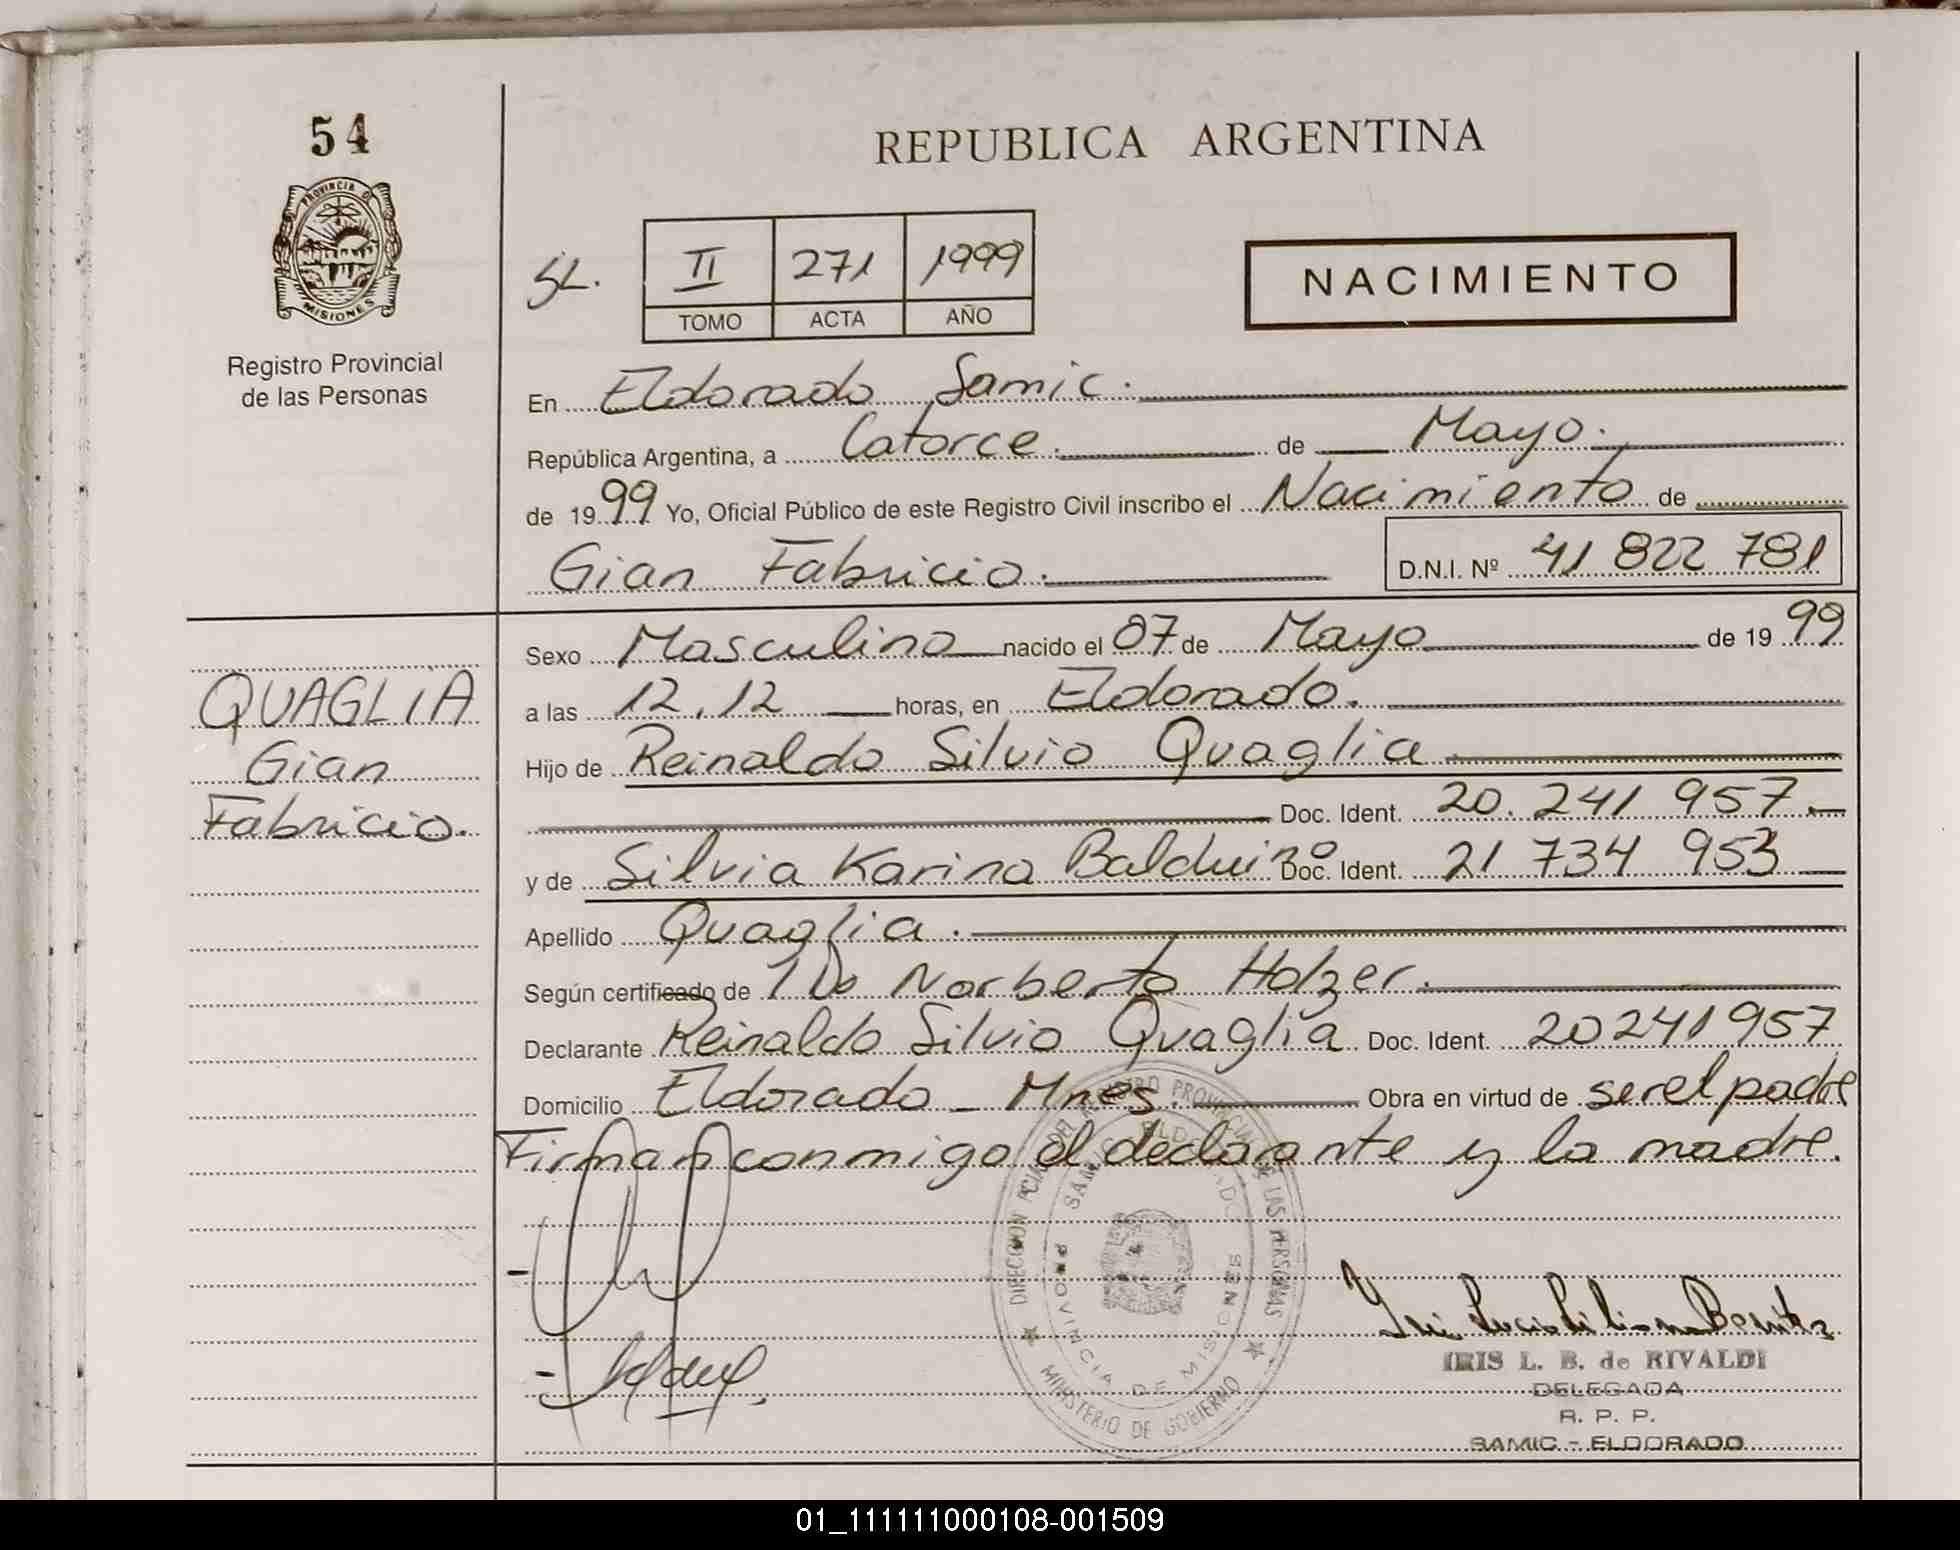 54
PROVINCIA D
MISIONES
Registro Provincial
de las Personas
REPUBLICA ARGENTINA
SL.
II 271 1999
TOMO ACTA AÑO
NACIMIENTO
En Eldorado Samic.
República Argentina, a Catorce. de Mayo.
de 1999 Yo, Oficial Público de este Registro Civil inscribo el Nacimiento de
Gian Fabricio. D.N.I. Nº 41 822 781
QUAGLIA
Gian
Fabricio.
Sexo Masculino nacido el 07 de Mayo de 1999
a las 12,12 horas, en Eldorado.
Hijo de Reinaldo Silvio Quaglia
Doc. Ident. 20.241 957.
y de Silvia Karina Balduino Doc. Ident. 21 734 953
Apellido Quaglia.
Según certificado de Norberto Holzer.
Declarante Reinaldo Silvio Quaglia Doc. Ident. 20241957
Domicilio Eldorado - Mnes. Obra en virtud de ser el padre
Firman conmigo el declarante y la madre.
DIRECCION PCIAL DEL REGISTRO PROVINCIAL DE LAS PERSONAS
MINISTERIO DE GOBIERNO
SAMIC ELDORADO
PROVINCIA DE MISIONES
IRIS L. B. de RIVALDI
DELEGADA
R. P. P.
SAMIC - ELDORADO
01_111111000108-001509